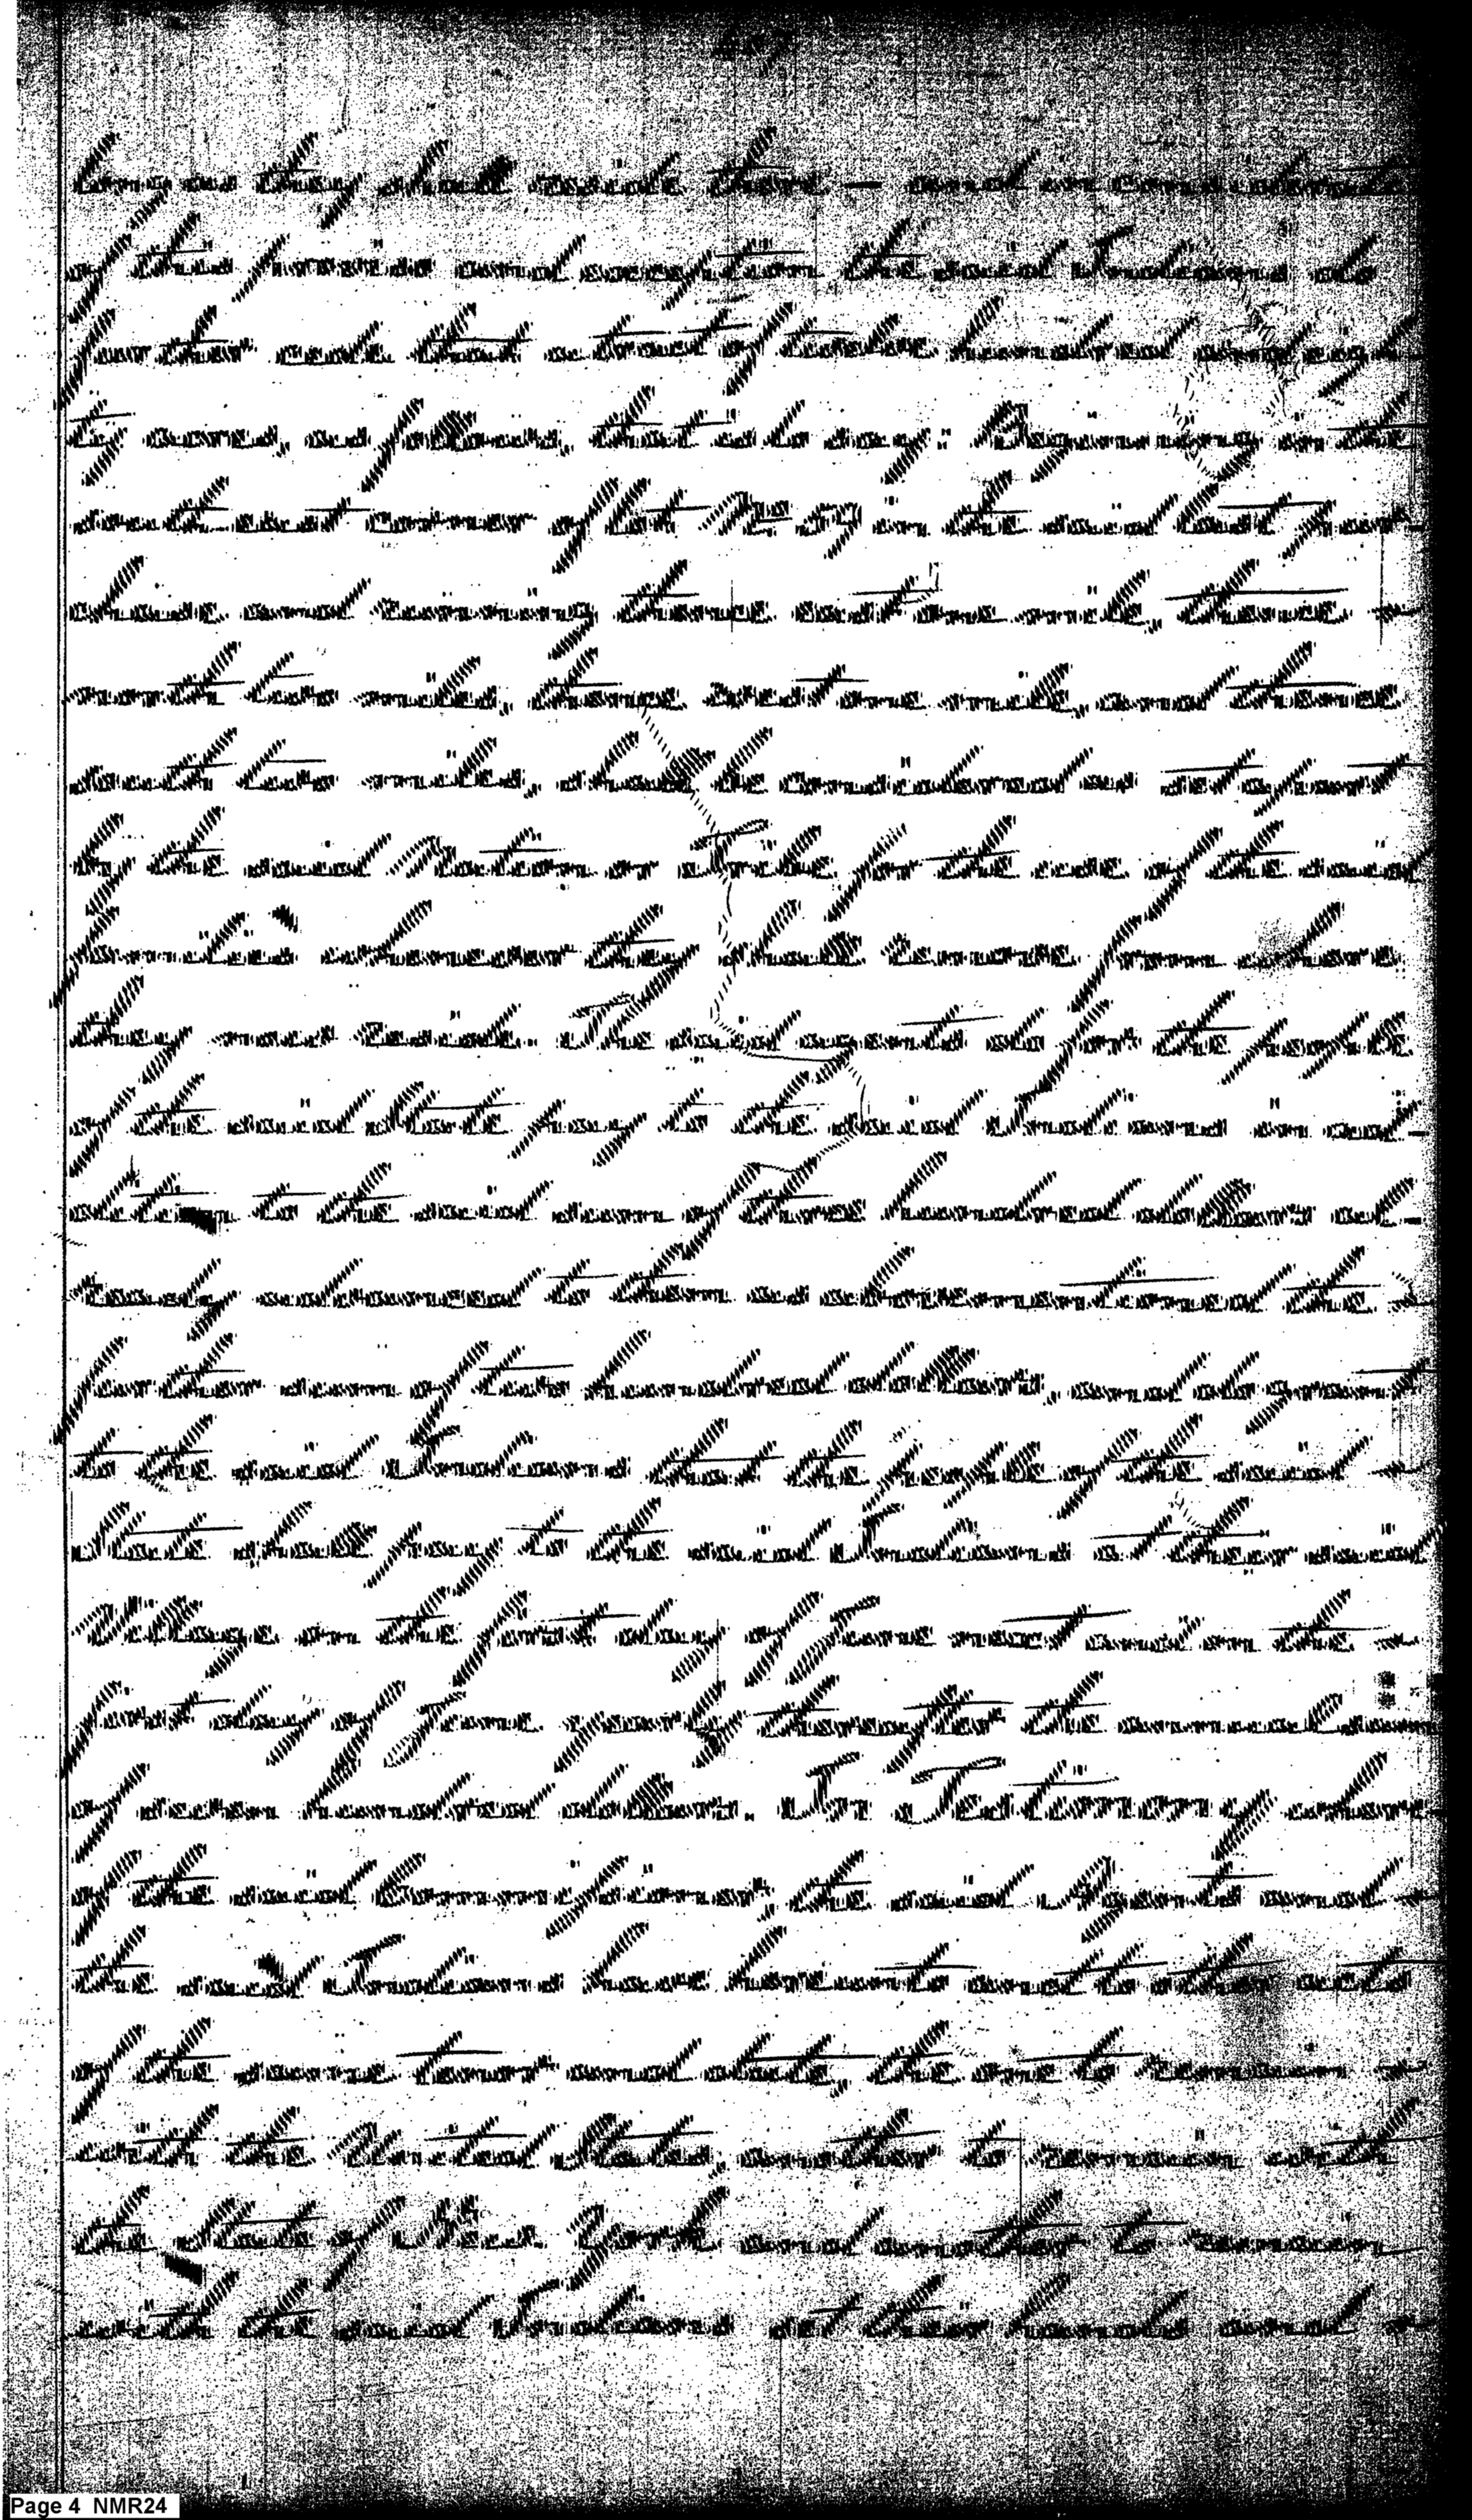 long as they shall reside there — and in
of this provision and exception the said Indians do
further cede
ty acres, as follows, that is to say: Beginning in the
south east corner of lot No. 59, in the said last pur-
chase and running thence east one mile, thence
north two miles, thence west one mile, and thence
south two miles, shall be considered as
by the said Nation or Tribe for the use of the said
families whenever they shall remove from where
they now reside. The said agents do for the people
of the said State, pay to the said Indians in ad-
dition to the said sum of three hundred dollars al-
ready advanced to them as aforementioned the
further sum of two hundred dollars, and do grant
to the said Indians that the people of the said
State shall pay to the said Indians at their said
Village on the first day of June next and on the
first day of June yearly thereafter the annual sum
of seven hundred dollars. In Testimony where-
of the said Commissioner, the said Agents and
the said Indians have hereunto and to two other acts
of the same tenor and date, the one to remain
with the United States, another to remain with
the State of New York and another to remain
with the said Indians set their hands and
Page 4 NMR24